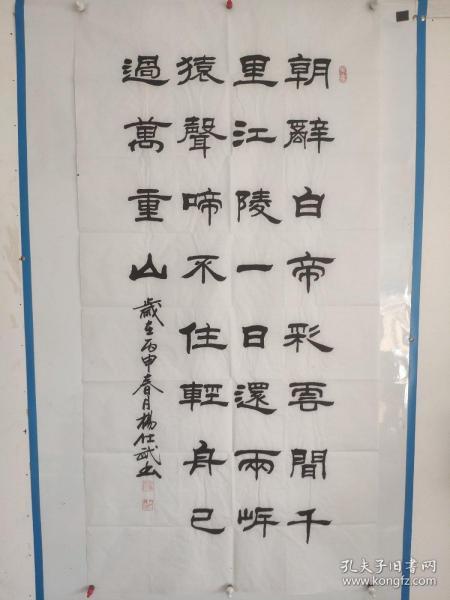 朝辭白帝彩雲間千
里江陵一日還兩岍
猿聲啼不住輕舟已
過萬重山
歲在丙申春月楊仕武書
孔夫子旧书网
www.kongfz.com